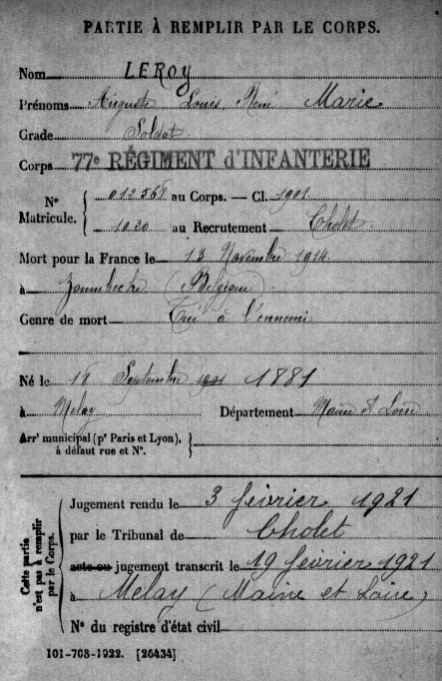 PARTIE À REMPLIR PAR LE CORPS.
Nom LEROY
Prénoms Auguste Louis René Marie
Grade Soldat
Corps 77e RÉGIMENT d'INFANTERIE
N° Matricule. { 012568 au Corps. — Cl. 1901
1020 au Recrutement Cholet
Mort pour la France le 13 Novembre 1914
à Zonnebecke (Belgique).
Genre de mort Tué à l'ennemi
Né le 18 Septembre 1881
à Melay Département Maine & Loire
Arr^t municipal (p^r Paris et Lyon),
à défaut rue et N°.
Cette partie
n'est pas à remplir
par le Corps.
Jugement rendu le 3 février 1921
par le Tribunal de Cholet
acte ou jugement transcrit le 19 février 1921
à Melay (Maine et Loire)
N° du registre d'état civil
101-708-1922. [26434]